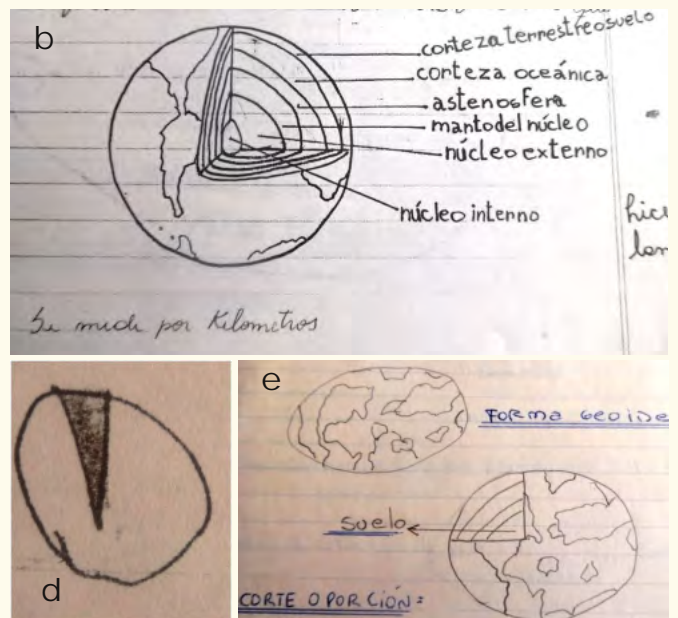 b
corteza terrestre o suelo
corteza oceánica
astenosfera
manto del núcleo
núcleo externo
núcleo interno
Se mide por Kilometros
d
e
FORMA GEOIDE
suelo
CORTE O PORCIÓN: